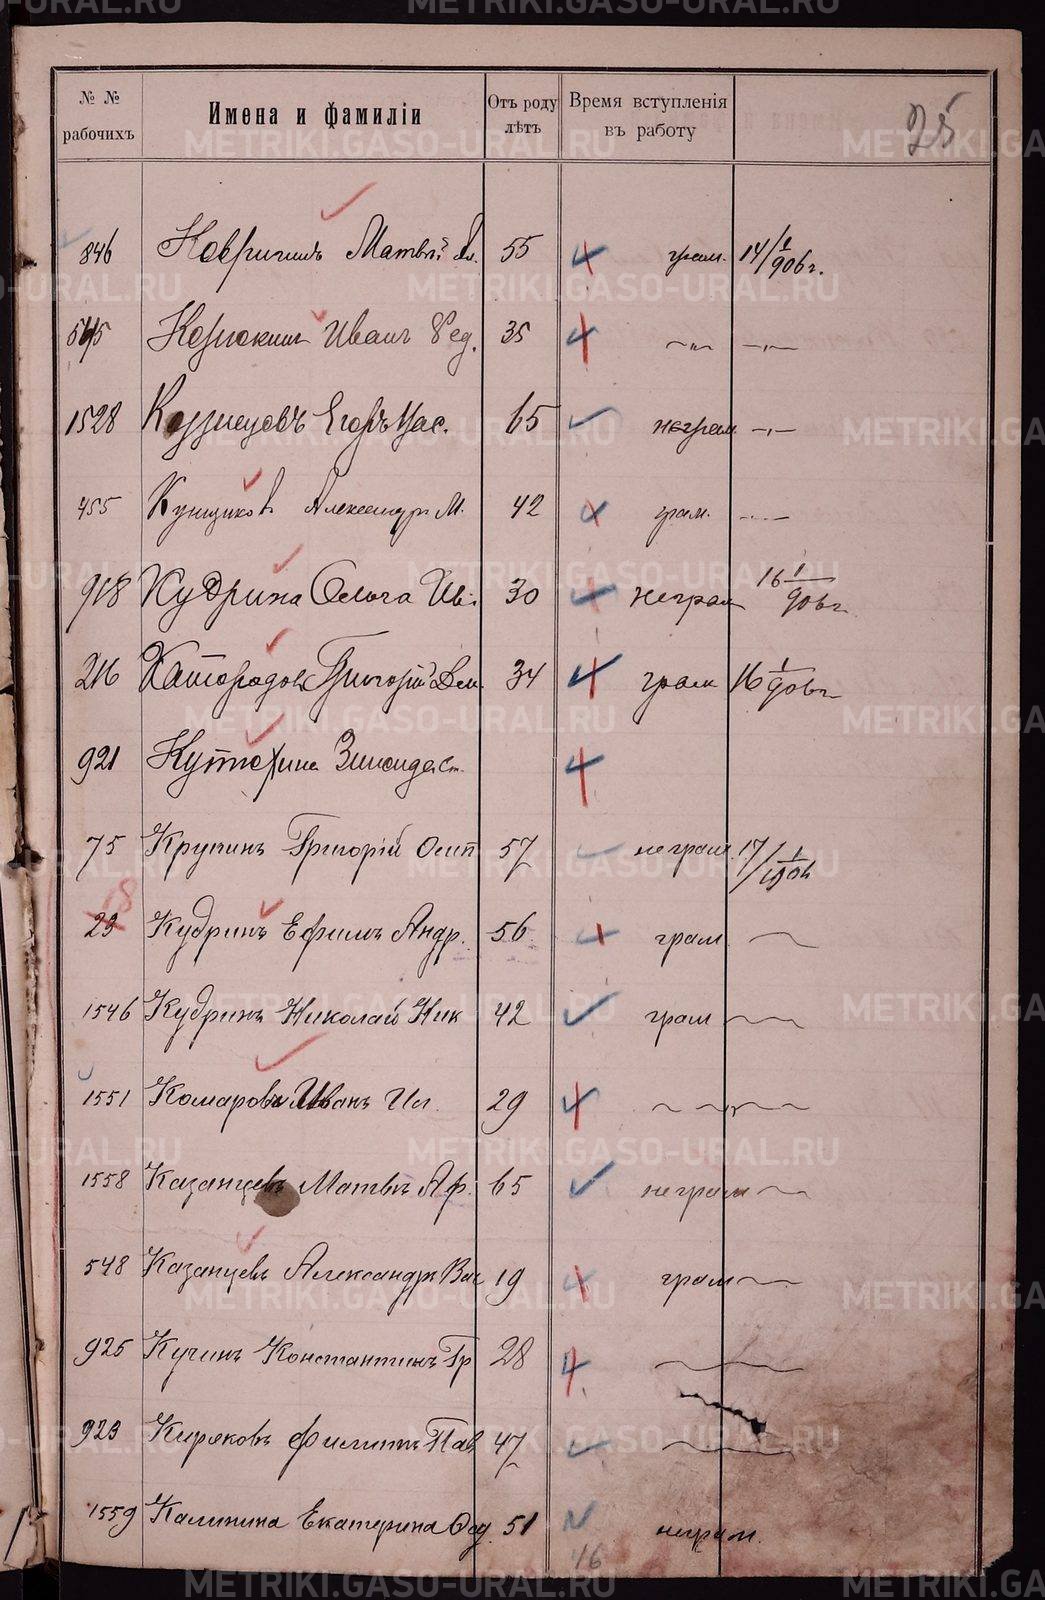 № № рабочихъ Имена и фамиліи Отъ роду лѣтъ Время вступленія въ работу 25
846 Ковригинъ Матвѣй 55 грам. 14/1 906 г.
545 Иванъ Фед. 35 —„— —„—
1528 Кузнецовъ Егоръ Вас. 65 неграм —„—
455 Кунщиковъ Александръ М. 42 грам. —„—
918 Кудрина Ольга Ив. 30 неграм 16 1/906 г.
216 Григорій Дем. 34 грам 16 1/906 г.
921 Зинаида Ст.
75 Крупинъ Григорій Осип 57 неграм. 17/1 1906
18
23 Кудринъ Ефимъ Андр. 56 грам
1546 Кудринъ Николай Ник 42 грам
1551 Комаровъ Иванъ Ил. 29 — „ —
1558 Казанцевъ Матвѣй Аф. 65 неграм
548 Казанцевъ Александръ Вас 19 грам
925 Кучинъ Константинъ Гр 28
923 Киряковъ Филиппъ Пав 47
1559 Калинина Екатерина Фед. 51 неграм.
16
METRIKI.GASO-URAL.RU